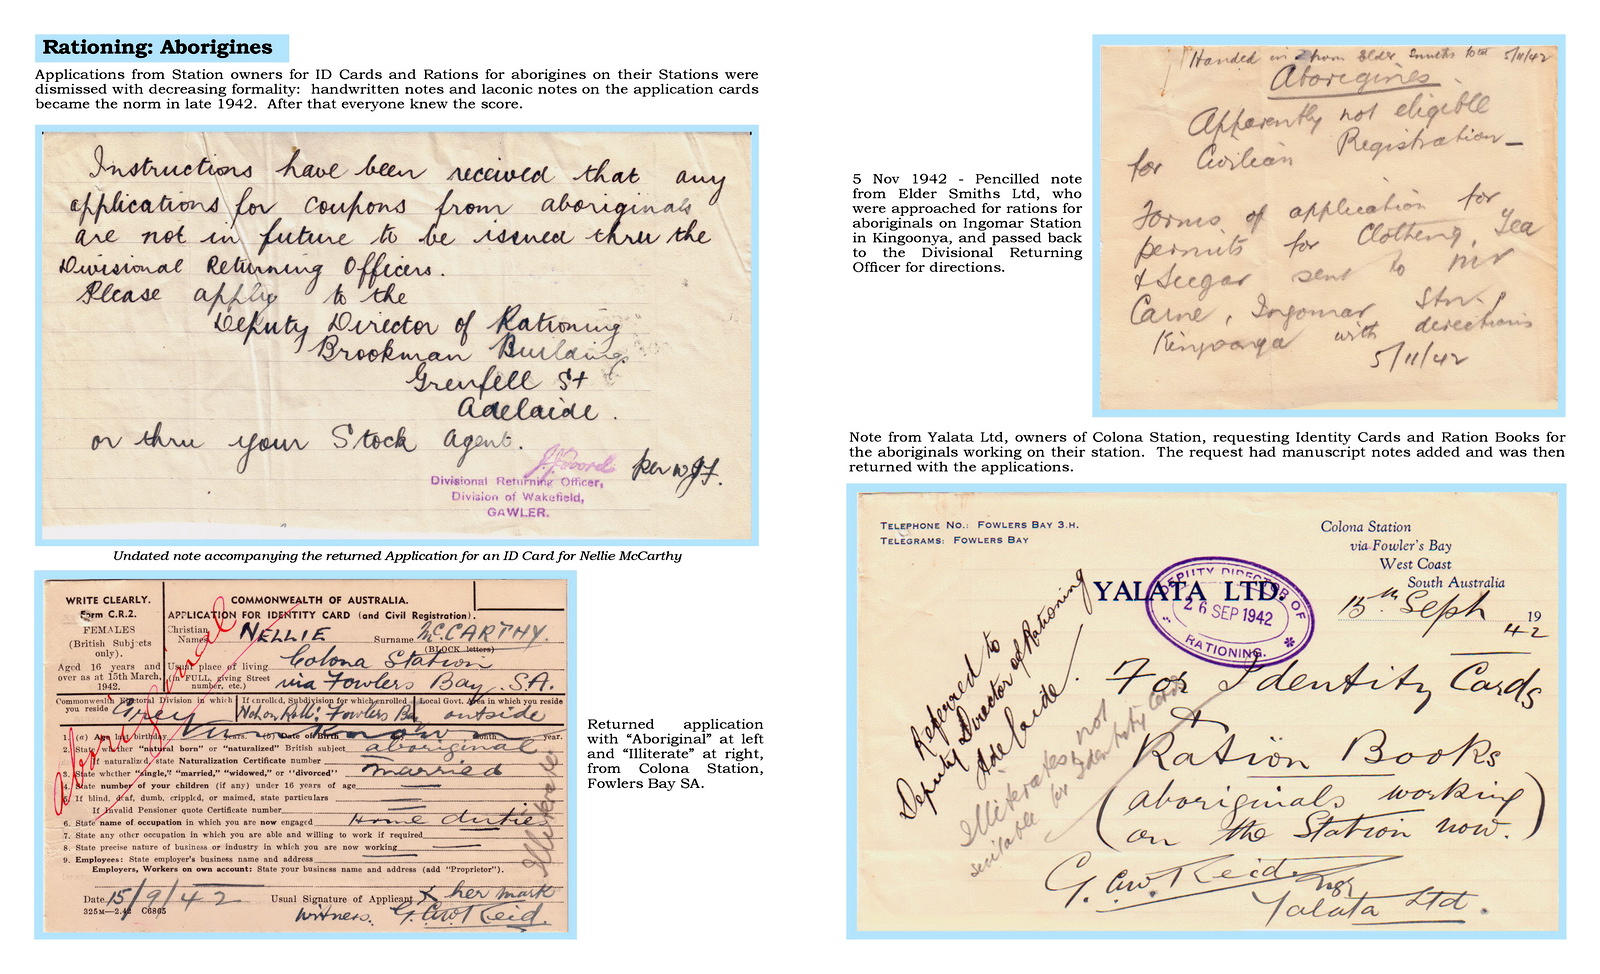 Rationing: Aborigines
Applications from Station owners for ID Cards and Rations for aborigines on their Stations were
dismissed with decreasing formality: handwritten notes and laconic notes on the application cards
became the norm in late 1942. After that everyone knew the score.
Instructions have been received that any
applications for coupons from aboriginals
are not in future to be issued thru the
Divisional Returning Officers.
Please apply to the
Deputy Director of Rationing
Brookman Building
Grenfell St
Adelaide.
or thru your Stock agent.
per
Divisional Returning Officer,
Division of Wakefield,
GAWLER.
Undated note accompanying the returned Application for an ID Card for Nellie McCarthy
WRITE CLEARLY.
Form C.R.2.
FEMALES
(British Subjects
only).
Aged 16 years and
over as at 15th March,
1942.
COMMONWEALTH OF AUSTRALIA.
APPLICATION FOR IDENTITY CARD (and Civil Registration).
Christian
Names NELLIE Surname McCARTHY.
(BLOCK letters)
Usual place of living Colona Station
(in FULL, giving Street
number, etc.) via Fowlers Bay. S.A.
Commonwealth Electoral Division in which
you reside Grey
If enrolled, Subdivision for which enrolled
Not on Roll: Fowlers Bay
Local Govt. Area in which you reside
outside
1. (a) Age last birthday years. (b) Date of Birth month year.
Unknown
2. State whether "natural born" or "naturalized" British subject aboriginal
If naturalized, state Naturalization Certificate number
3. State whether "single," "married," "widowed," or "divorced" married
4. State number of your children (if any) under 16 years of age
5. If blind, deaf, dumb, crippled, or maimed, state particulars
If Invalid Pensioner quote Certificate number
6. State name of occupation in which you are now engaged Home duties
7. State any other occupation in which you are able and willing to work if required
8. State precise nature of business or industry in which you are now working
9. Employees: State employer's business name and address
Employers, Workers on own account: State your business name and address (add "Proprietor").
Date 15/9/42 Usual Signature of Applicant X her mark
325M—2.42 C6865 Witness. G. Reid.
Aboriginal
Illiterate
Returned application
with "Aboriginal" at left
and "Illiterate" at right,
from Colona Station,
Fowlers Bay SA.
5 Nov 1942 - Pencilled note
from Elder Smiths Ltd, who
were approached for rations for
aboriginals on Ingomar Station
in Kingoonya, and passed back
to the Divisional Returning
Officer for directions.
Handed in from Elder Smiths 5/11/42
Aborigines.
Apparently not eligible
for Civilian Registration—
Forms of application for
permits for Clothing, Tea
& Sugar sent to Mr
Carne, Ingomar Stn.,
Kingoonya with directions
5/11/42
Note from Yalata Ltd, owners of Colona Station, requesting Identity Cards and Ration Books for
the aboriginals working on their station. The request had manuscript notes added and was then
returned with the applications.
TELEPHONE NO.: FOWLERS BAY 3.H.
TELEGRAMS: FOWLERS BAY
Colona Station
via Fowler's Bay
West Coast
South Australia
YALATA LTD.
DEPUTY DIRECTOR OF
26 SEP 1942
RATIONING.
15th Sept 1942
Referred to
Deputy Director of Rationing
Adelaide.
Illiterates not
suitable for Identity Cards
For Identity Cards
&
Ration Books
(aboriginals working
on the Station now.)
G. Reid
Yalata Ltd.